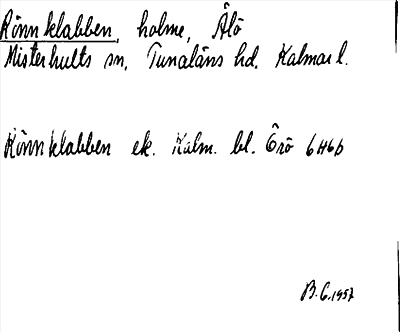 Rönnklabben, holme, Älö
Misterhults sn, Tunaläns hd, Kalmar l.
Rönnklabben ek. Kalm. bl. Örö 6H6b
B.C. 1957